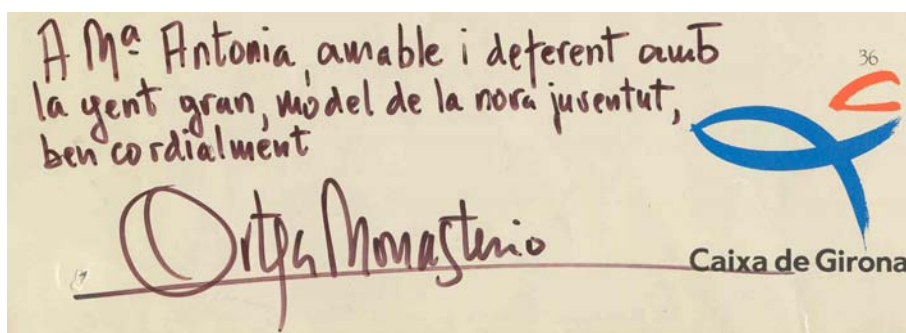 A Mª Antonia, amable i deferent amb
la gent gran, model de la nova juventut,
ben cordialment
Ortega Monasterio
36
Caixa de Girona